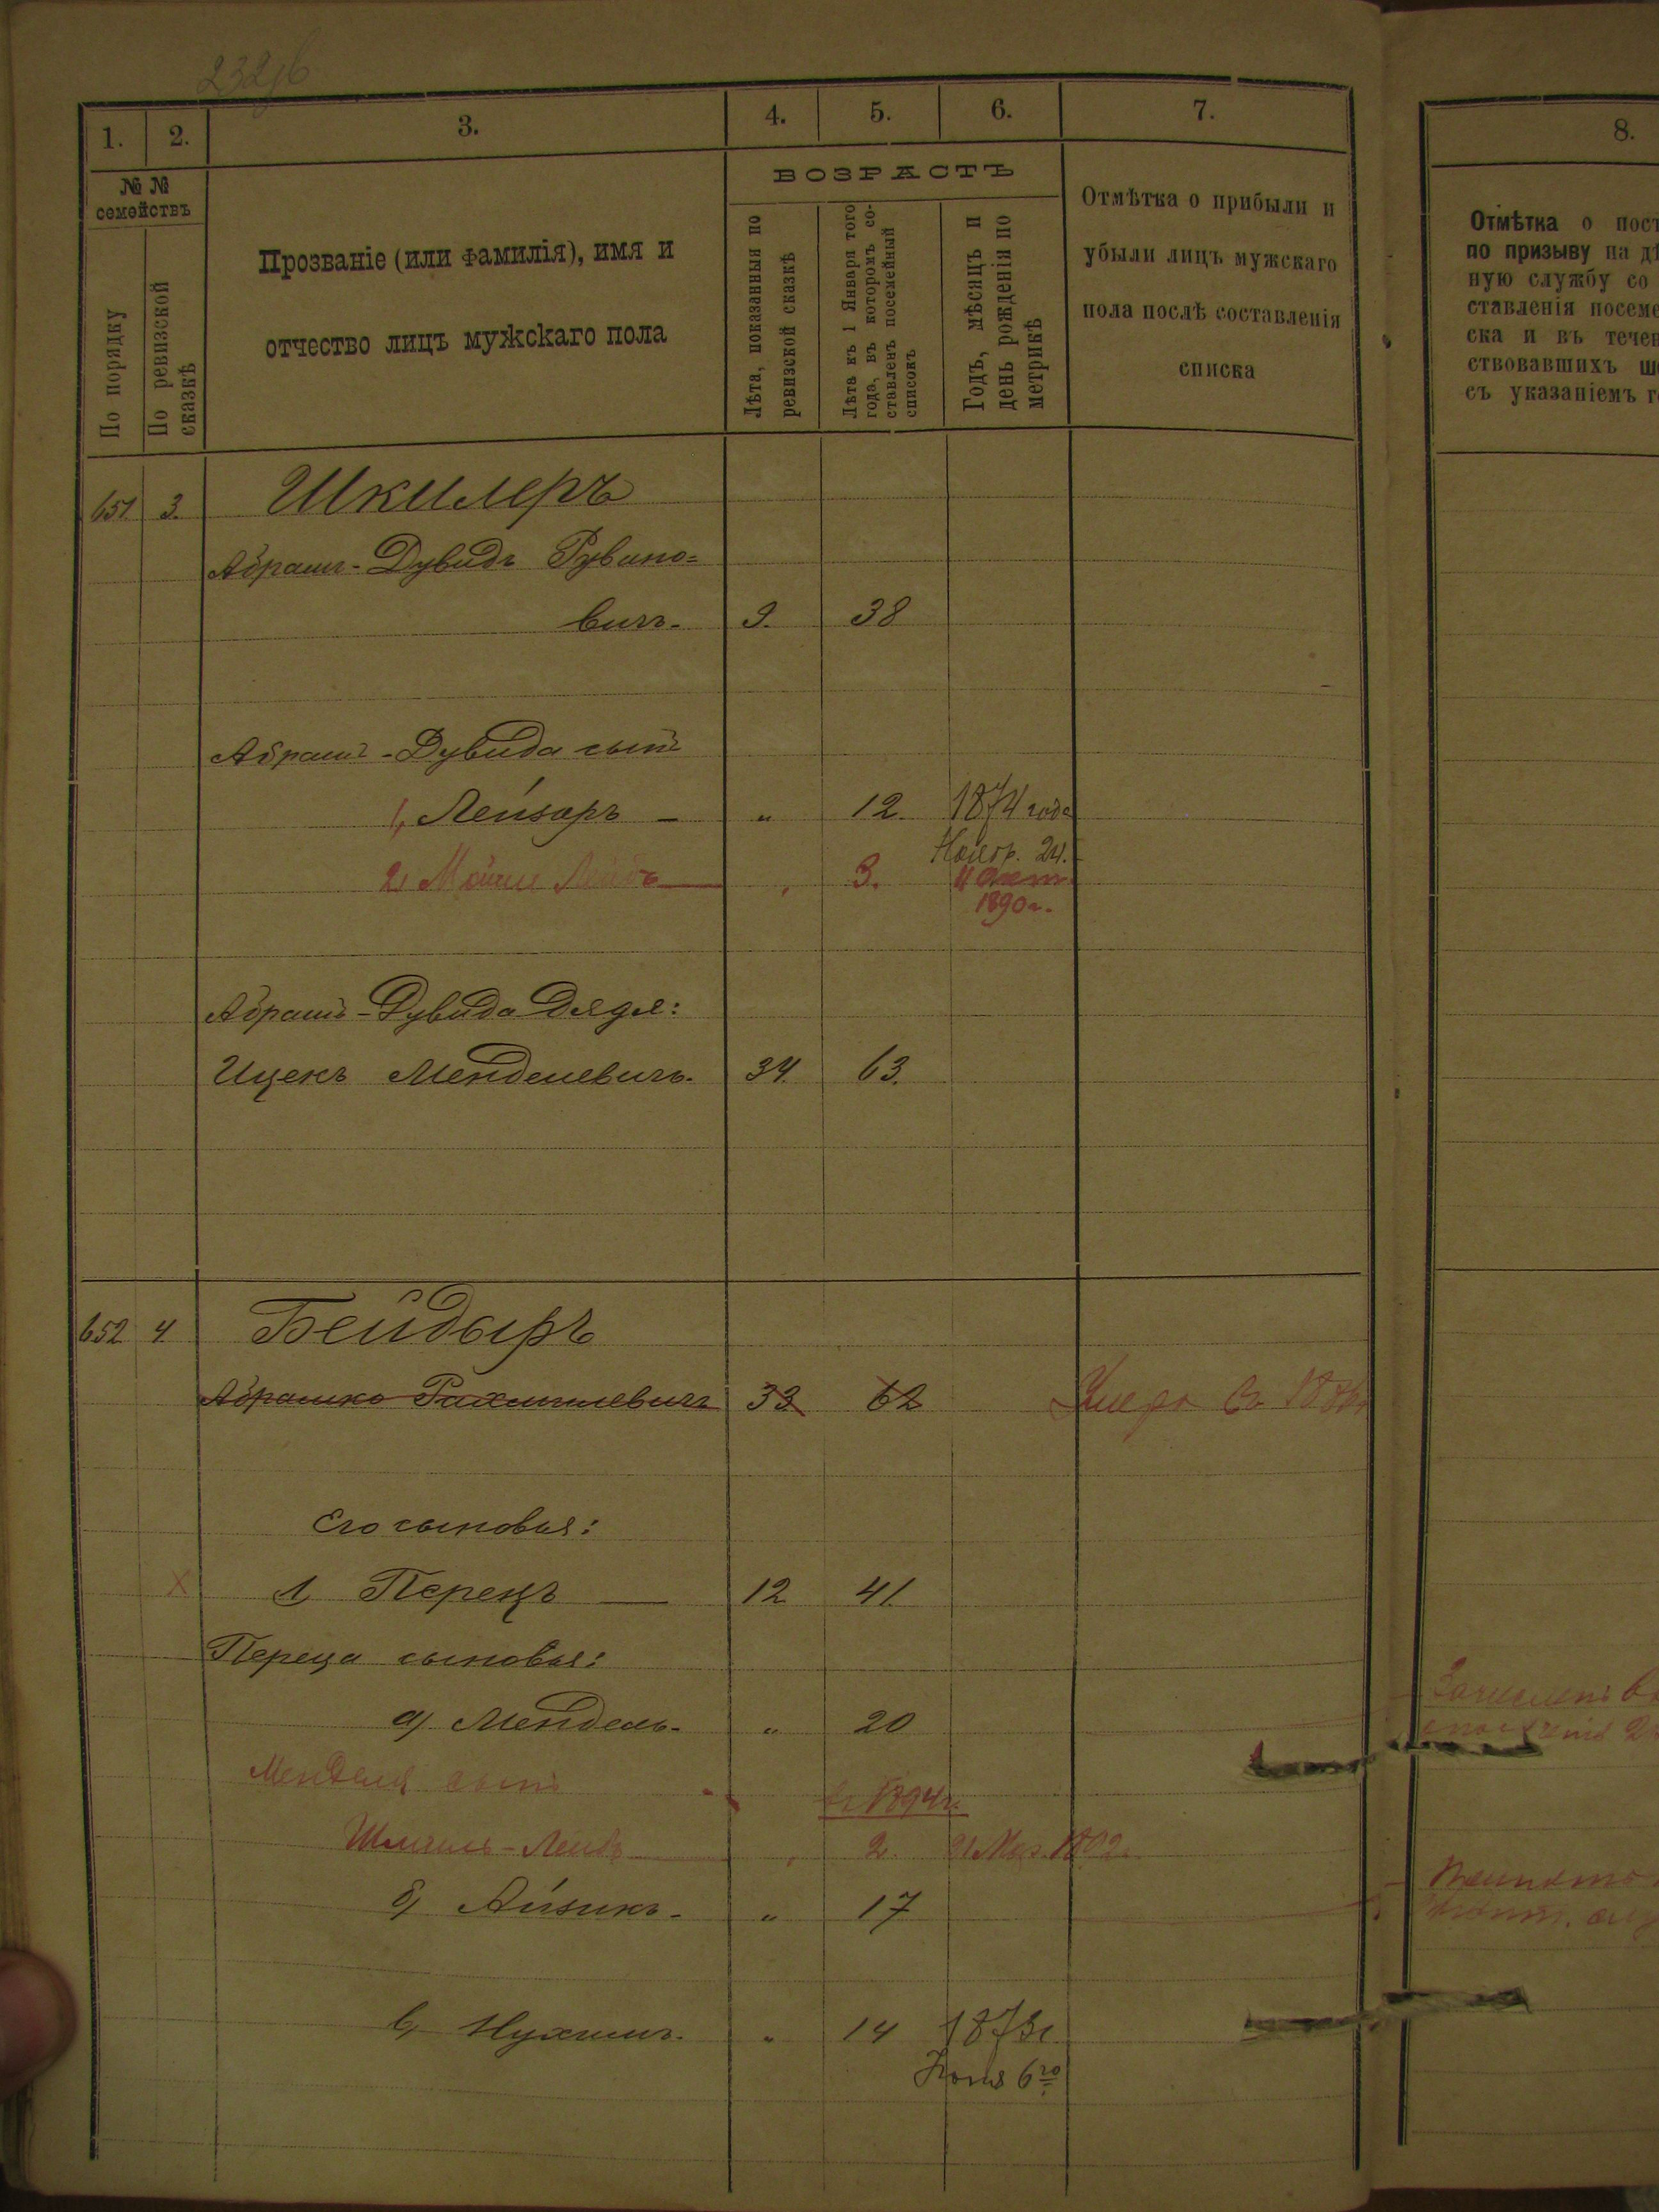 1.
2.
3.
4.
5.
6.
7.
8.
№ №
семействъ
По порядку
По ревизской
сказкѣ
Прозваніе (или фамилія), имя и
отчество лицъ мужскаго пола
ВОЗРАСТЪ
Лѣта, показанныя по
ревизской сказкѣ
Лѣта къ 1 Января того
года, въ которомъ со-
ставленъ посемейный
списокъ
Годъ, мѣсяцъ и
день рожденія по
метрикѣ
Отмѣтка о прибыли и
убыли лицъ мужскаго
пола послѣ составленія
списка
Отмѣтка о пост
по призыву на дѣ
ную службу со
ставленія посеме
ска и въ течен
ствовавшихъ ш
съ указаніемъ г
651. 3. Шкилеръ
Абрамъ-Дувидъ Рувино=
вичъ. 9. 38
Абрамъ-Дувида сынъ
1, Лейзаръ — " 12. 1874 года
Нояб. 24.
2, Мойше Лейбъ — " 3. 4 Окт.
1890 г.
Абрамъ-Дувида дядя:
Ицекъ Менделевичъ. 34. 63.
652 4. Бейдыръ
Абрамко Рахмилевичъ 33 62 Умеръ въ
Его сыновья:
х 1, Перецъ — 12 41.
Переца сыновья:
а) Мендель. " 20
Менделя сынъ
въ 1894 г.
Шмиль-Лейбъ — " 2.
б) Айзикъ. " 17
в) Нухимъ. " 14 1873 г.
Іюня 6го